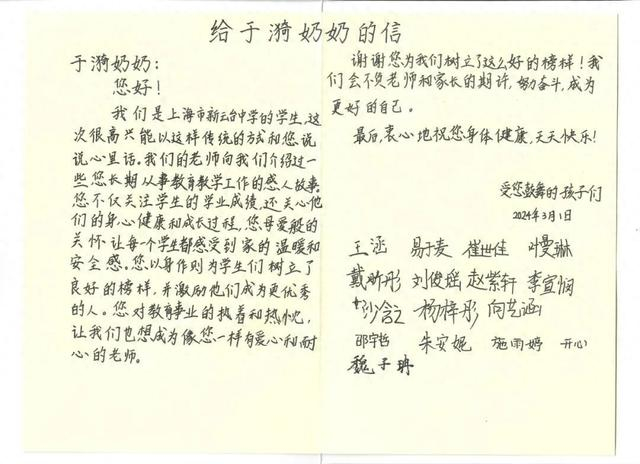 给于漪奶奶的信
于漪奶奶:
您好!
我们是上海市新云台中学的学生,这
次很高兴能以这样传统的方式和您说
说心里话。我们的老师向我们介绍过一
些您长期从事教育教学工作的感人故事,
您不仅关注学生的学业成绩,还关心他
们的身心健康和成长过程,您母爱般的
关怀让每一个学生都感受到家的温暖和
安全感。您以身作则为学生们树立了
良好的榜样,并激励他们成为更优秀
的人。您对教育事业的执着和热忱,
让我们也想成为像您一样有爱心和耐
心的老师。
谢谢您为我们树立了这么好的榜样!我
们会不负老师和家长的期许,努力奋斗,成为
更好的自己。
最后,衷心地祝您身体健康,天天快乐!
受您鼓舞的孩子们
2024年3月1日
王涵 易子麦 崔世佳 叶曼琳
戴 彤 刘俊瑶 赵紫轩 李宣润
杨梓彤 向芝涵
邵宇哲 朱安妮 施雨婷 开心
魏子冉